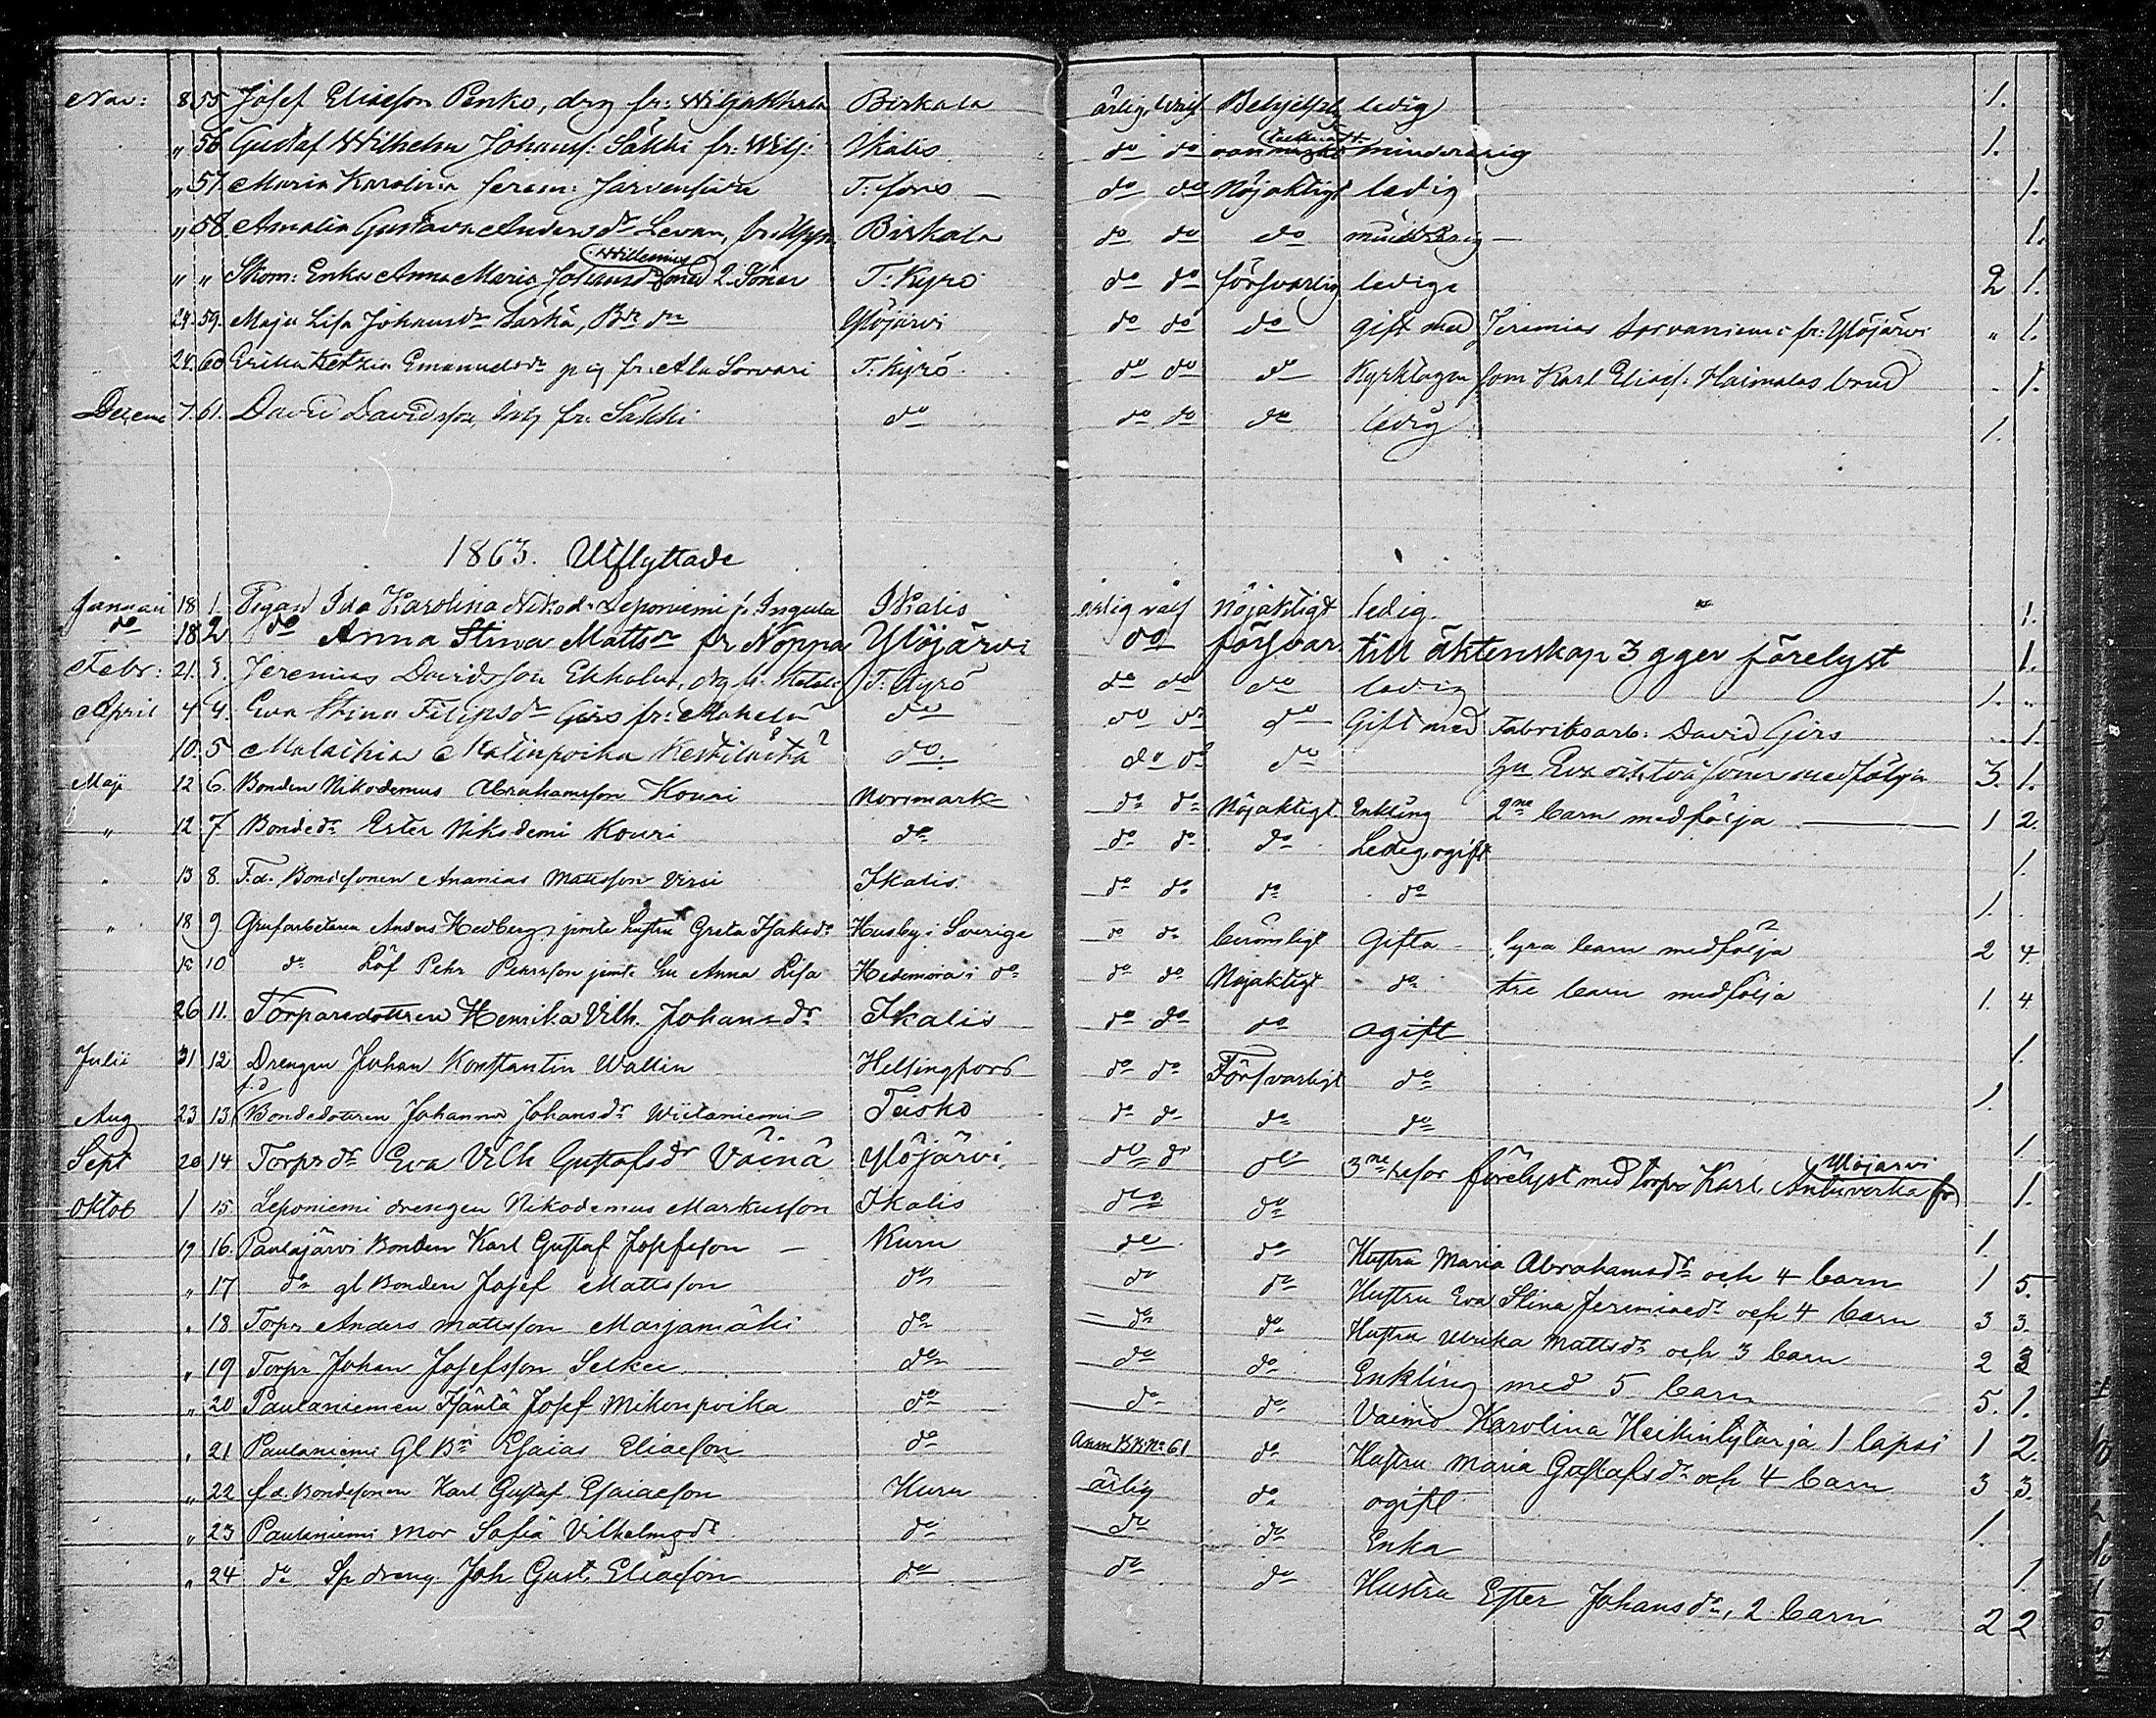 Nov: 8 55 Josef Eliaeson Penko, drg fr: Wiljakkala Birkala ärlig, väl Behjelpl. ledig 1.
" 56 Gustaf Wilhelm Johans: Säkki fr: Wilj: Ikalis do do minderårig 1.
" 57. Maria Karolina Jerem: Järvensivu T:fors do do Nöjaktigt ledig 1.
" 58. Amalia Gustava Anders dr Levan, Birkala do do do minderårig 1.
" " Enka Anna Maria Johansdr Willenius med 2 Söner T: Kyro do do försvarlig lediga 2 1.
24. 59. Maja Lisa Johansdr Särkä, Bdr Ylöjärvi do do do gift med Jeremias Sorvaniemi fr: Ylöjärvi " 1.
24. 60 Emanuelsdr pig fr: Ala Sorvari T. Kyrö do do do Kyrktagen som Karl Elias: Haimalas brud 1.
Decem 7. 61. David Davidsson, fr. Säkki do do do do ledig 1.
1863. Utflyttade
Januari 18 1. Pigan Ida Karolina Nikod: Leponiemi fr. Ingula Ikalis ärlig väl Nöjaktigt ledig. 1.
do 18 2 do Anna Stina Matts dr fr Noppa Ylöjärvi do försvar. till äktenskap 3 gger förelyst 1.
Febr: 21. 3. Jeremias Davidsson Ekholm, drg fr. T: Kyrö do do do ledig 1. "
April 4 4. Eva Stina Filips dr Girs fr: Mahela do do do do Gift med Fabriksarb: David Girs 1.
10. 5 Malachia Matinpoika do. do do do hu Eva och två söner medfölja 3. 1.
Maji 12 6. Bonden Nikodemus Abrahamsson Kouri Norrmark do do Nöjaktigt Enkling 2ne barn medfölja 1 2.
" 12 7 Bondedr Ester Nikodemi Kouri do do do do Ledig, ogift 1.
" 13 8. F.d. Bondesonen Ananias Mattsson Virsi Ikalis do do do do 1.
" 18 9 Grufarbetaren Anders Hedberg jemte hustru Greta Isaksdr Husby i Sverige do do berömligt Gifta fyra barn medfölja 2 4
18 10 do Löf Pehr Pehrsson jemte hu Anna Lisa Hedemora i do do do Nöjaktigt do tre barn medfölja 1. 4
26 11. Torparedottren Henrika Vilh. Johansdr Ikalis do do do ogift 1.
Julii 31 12 Drengen Johan Konstantin Wallin Helsingfors do do Försvarligt do 1.
Aug 23 13 f.d Bondedottren Johanna Johansdr Wiitaniemi Teisko do do do do 1
Sept 20 14 Torpdr Eva Vilh Gustafsdr Väinä Ylöjärvi. do do do 3ne resor förelyst med torpr Karl Anluverka fr Ylöjärvi 1.
Oktob 1 15 Leponiemi drengen Nikodemus Markusson Ikalis do do 1.
19 16. Paulajärvi Bonden Karl Gustaf Josefsson Kuru do do Hustru Maria Abrahamsdr och 4 barn 1 5.
" 17 do gl Bonden Josef Mattsson do do do Hustru Eva Stina Jeremiaedr och 4 barn 3 3.
" 18 Torpr Anders Mattsson Marjamäki do do do Hustru Ulrika Mattsdr och 3 barn 2 3
" 19 Torpr Johan Josefsson Selkee do do do Enkling med 5 barn 5. 1.
" 20 Paulaniemen Isäntä Josef Mikonpoika do do do Vaimo Karolina Heikintytär ja 1 lapsi 1 2.
" 21 Paulaniemi Gl Bn Esaias Eliaeson do Anm KB No 61 do Hustru Maria Gustafsdr och 4 barn 3 3.
" 22 f.d. Bondesonen Karl Gustaf Esaiaeson Kuru ärlig do ogift 1.
" 23 Paulaniemi Mor Sofia Vilhelmsdr do do do Enka 1.
" 24 do Sp dreng Joh Gust. Eliaeson do do do Hustru Ester Johansdr, 2 barn 2 2